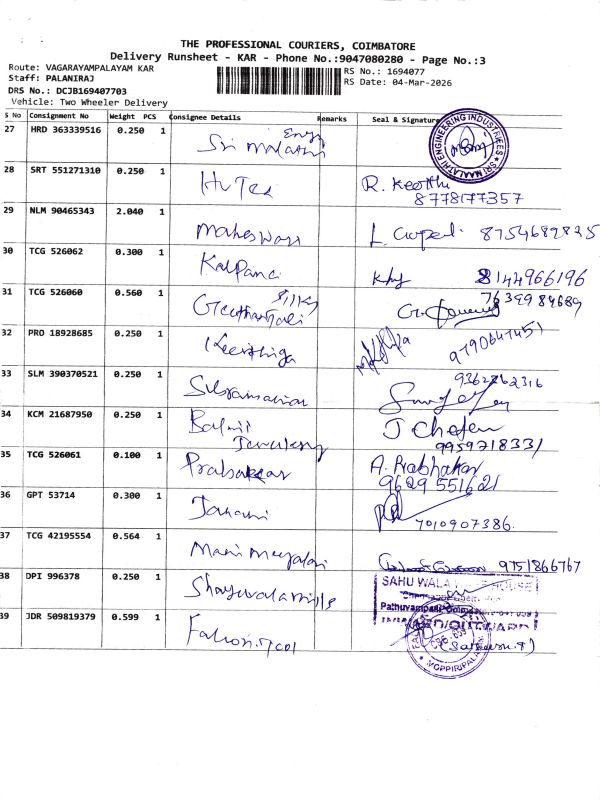 THE PROFESSIONAL COURIERS, COIMBATORE
Delivery Runsheet - KAR - Phone No.:9047080280 - Page No.:3
Route: VAGARAYAMPALAYAM KAR
RS No.: 1694077
Staff: PALANIRAJ
RS Date: 04-Mar-2026
DRS No.: DCJB169407703
Vehicle: Two Wheeler Delivery
S No Consignment No Weight PCS Consignee Details Remarks Seal & Signature
27 HRD 363339516 0.250 1 Sri Malathi Engg
SRI MAALATHI ENGINEERING INDUSTRIES
28 SRT 551271310 0.250 1 Hi Tex R. Keerthi
8778177357
29 NLM 90465343 2.040 1 Maheswari 8754689825
30 TCG 526062 0.300 1 Kalpana 8144966196
31 TCG 526060 0.560 1 Geethanjali Silks 7639984689
32 PRO 18928685 0.250 1 Keerthiga 9790647451
33 SLM 390370521 0.250 1 Subramanian 9362862316
34 KCM 21687950 0.250 1 Balaji Jewellery
9959718331
35 TCG 526061 0.100 1 Prabakar A. Prabhakar
9629551621
36 GPT 53714 0.300 1 Janani 7010907386.
37 TCG 42195554 0.564 1 9751866767
38 DPI 996378 0.250 1
SAHU WALA HOUSE
39 JDR 509819379 0.599 1 Falcon
MOPPIRIPALAYAM